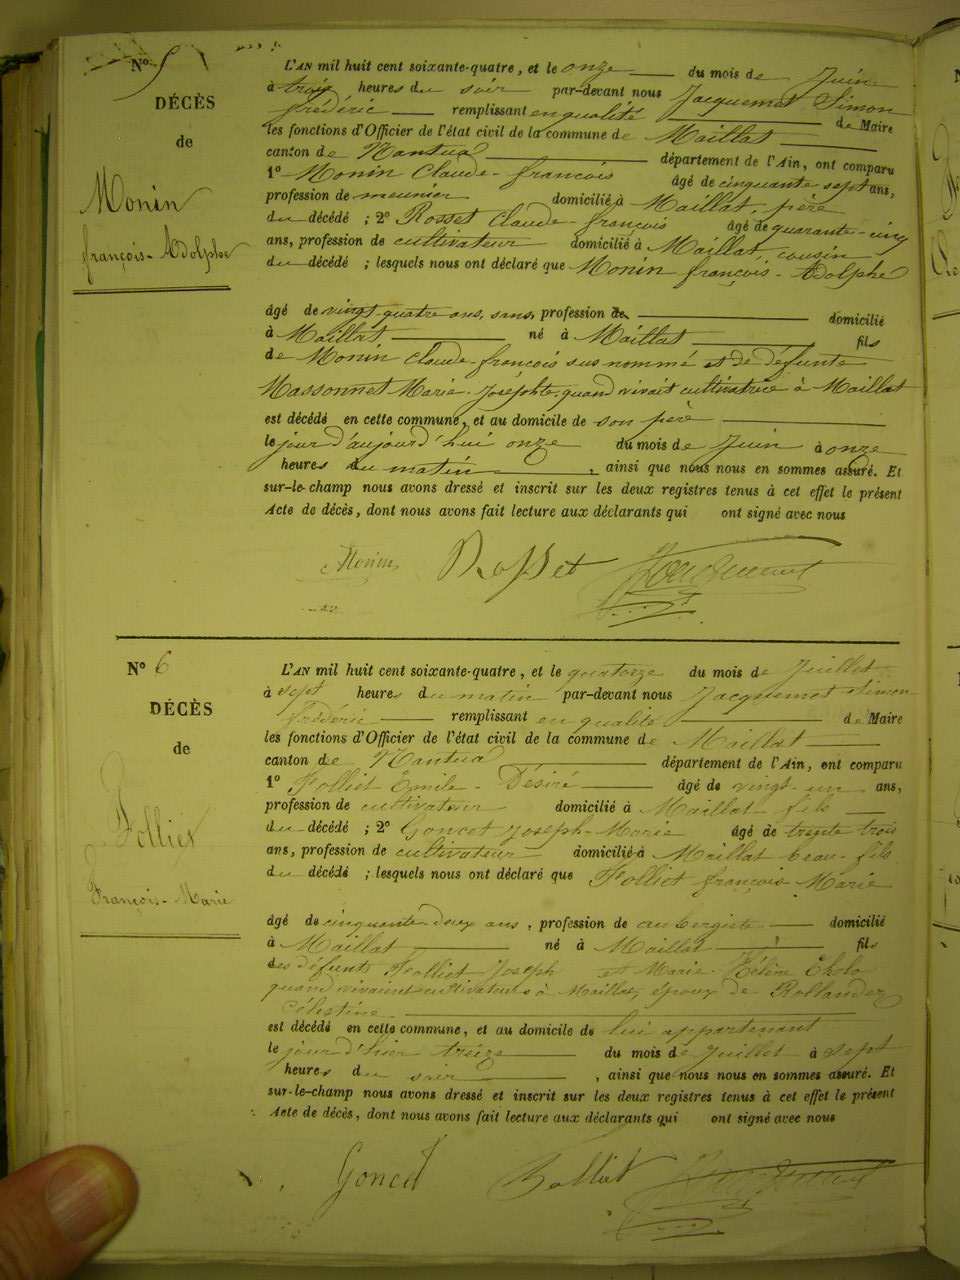 N° 5
DÉCÈS
de
Monin
françois-Adolphe
L'AN mil huit cent soixante-quatre, et le onze du mois de Juin
à trois heures du soir par-devant nous Jacquemet Simon
frédéric remplissant en qualité de Maire
les fonctions d'Officier de l'état civil de la commune de Maillat
canton de Nantua département de l'Ain, ont comparu
1° Monin Claude-françois âgé de cinquante sept ans,
profession de meunier domicilié à Maillat, père
du décédé ; 2° Rosset Claude-françois âgé de quarante-cinq
ans, profession de cultivateur domicilié à Maillat, cousin
du décédé ; lesquels nous ont déclaré que Monin françois-Adolphe
âgé de vingt-quatre ans, sans profession de domicilié
à Maillat né à Maillat fils
de Monin Claude-françois sus nommé et de défunte
Massonnet Marie-Josephte, quand vivait cultivatrice à Maillat
est décédé en cette commune, et au domicile de son père
le jour d'aujourd'hui onze du mois de Juin à onze
heures du matin , ainsi que nous nous en sommes assuré. Et
sur-le-champ nous avons dressé et inscrit sur les deux registres tenus à cet effet le présent
Acte de décès, dont nous avons fait lecture aux déclarants qui ont signé avec nous
Monin Rosset Jacquemet
N° 6
DÉCÈS
de
Folliet
François-Marie
L'AN mil huit cent soixante-quatre, et le quatorze du mois de Juillet
à sept heures du matin par-devant nous Jacquemet Simon
Frédéric remplissant en qualité de Maire
les fonctions d'Officier de l'état civil de la commune de Maillat
canton de Nantua département de l'Ain, ont comparu
1° Folliet Emile-Désiré âgé de vingt-un ans,
profession de cultivateur domicilié à Maillat fils
du décédé ; 2° Goncet Joseph-Marie âgé de trente trois
ans, profession de cultivateur domicilié à Maillat beau-fils
du décédé ; lesquels nous ont déclaré que Folliet françois Marie
âgé de cinquante-deux ans, profession de aubergiste domicilié
à Maillat né à Maillat fils
des défunts Folliet Joseph et Marie-Hélène
quand vivaient cultivateurs à Maillat, époux de Rollandez
Célestine
est décédé en cette commune, et au domicile de lui appartenant
le jour d'hier treize du mois de Juillet à sept
heures du soir , ainsi que nous nous en sommes assuré. Et
sur-le-champ nous avons dressé et inscrit sur les deux registres tenus à cet effet le présent
Acte de décès, dont nous avons fait lecture aux déclarants qui ont signé avec nous
Goncet Folliet Jacquemet